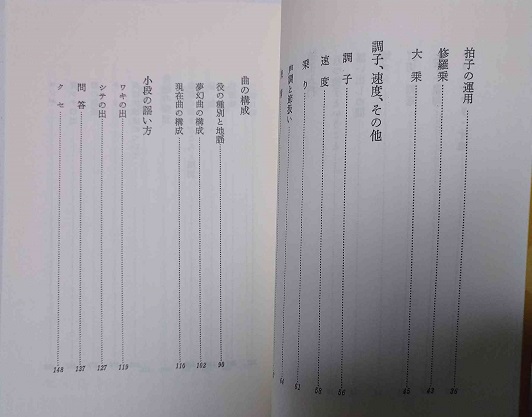 拍子の運用 36
修羅乗 43
大乗 45
調子、速度、その他
調子 56
速度 58
乗り 61
曲の構成
役の種別と地謡 96
夢幻曲の構成 102
現在曲の構成 110
小段の謡い方
ワキの出 119
シテの出 127
問答 137
クセ 148